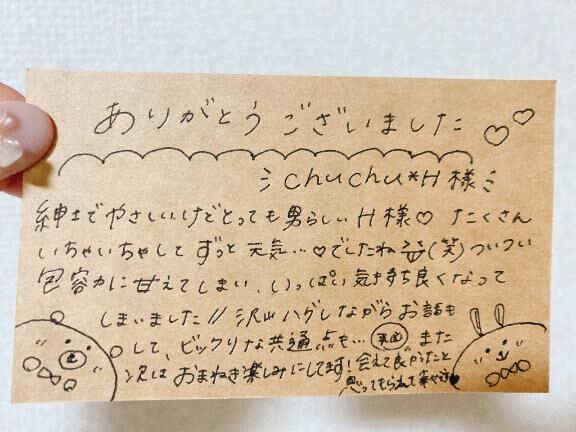 ありがとうございました♡♡
chuchu*H様
紳士でやさしいけどとっても男らしいH様♡ たくさん
いちゃいちゃして ずっと元気…♡でしたね (笑)ついつい
包容力に甘えてしまい、いっぱい気持ち良くなって
しまいました// 沢山ハグしながらお話も
して、ビックリな共通点も… また
次は おまねき楽しみにしてます!会えて良かったと
思ってもらえて幸せです♥